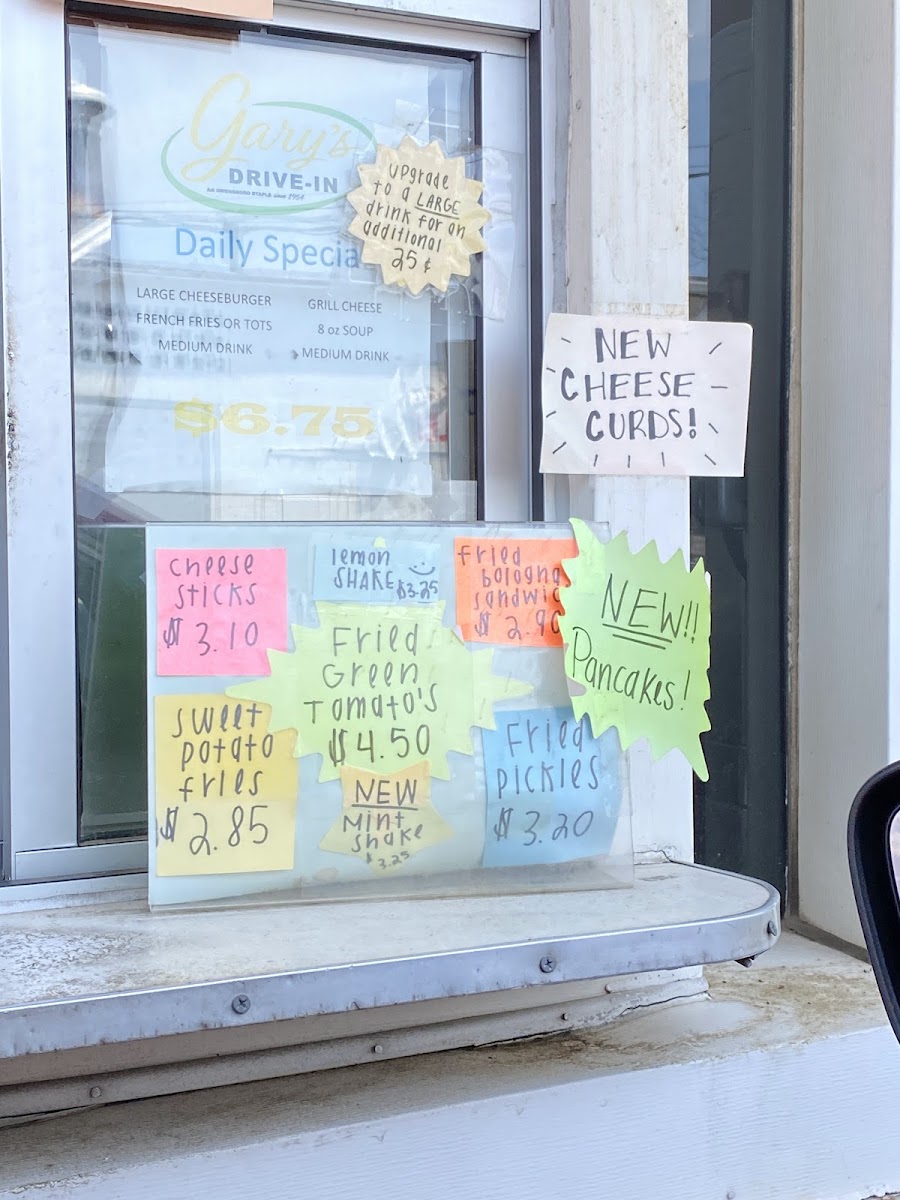 Gary's
DRIVE-IN
Daily Specia
LARGE CHEESEBURGER
FRENCH FRIES OR TOTS
MEDIUM DRINK
GRILL CHEESE
8 oz SOUP
MEDIUM DRINK
$6.75
UPgrade
to a LARGE
drink for an
additional
25 ¢
NEW
CHEESE
CURDS!
cheese
sticks
$3.10
lemon
SHAKE $3.25
Fried
bologna
sandwic
$2.90
NEW!!
Pancakes!
Fried
Green
Tomato's
$4.50
sweet
potato
fries
$2.85
NEW
Mint
shake
$3.25
Fried
Pickles
$3.20